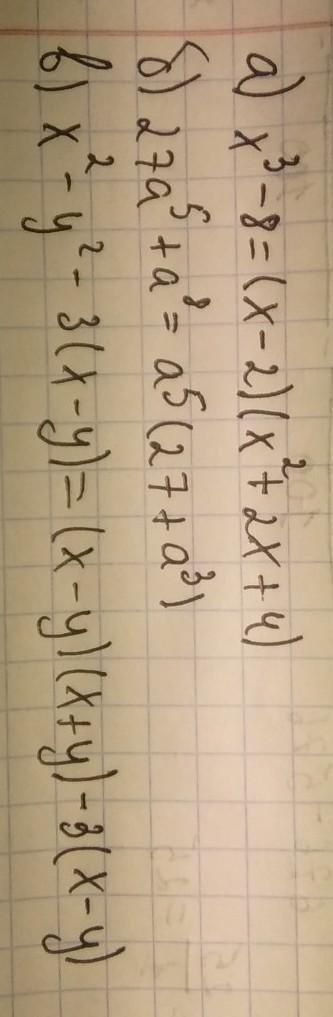 а) x³ - 8 = (x - 2)(x² + 2x + 4)
б) 27a⁵ + a⁸ = a⁵(27 + a³)
в) x² - y² - 3(x - y) = (x - y)(x + y) - 3(x - y)